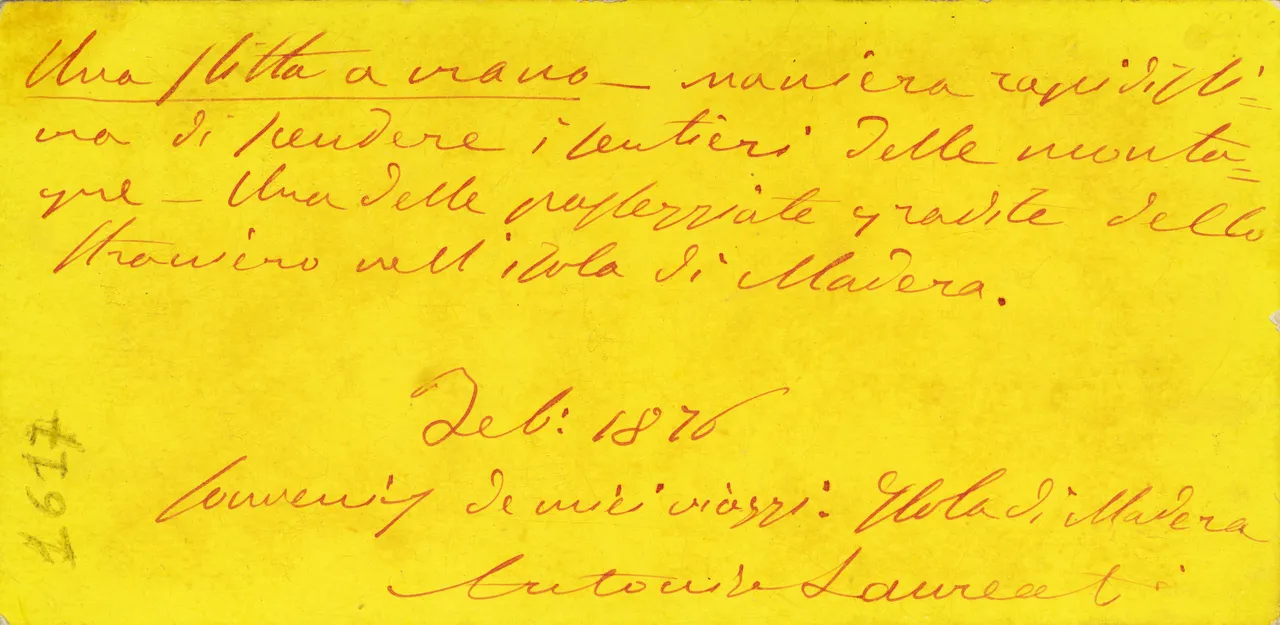 Una slitta a mano — maniera rapidissi=
ma di scendere i sentieri delle monta=
gne — Una delle passeggiate gradite dello
straniero nell'isola di Madera.
Feb: 1876
Souvenir de miei viaggi: Isola di Madera
Antonio Laureati
1617